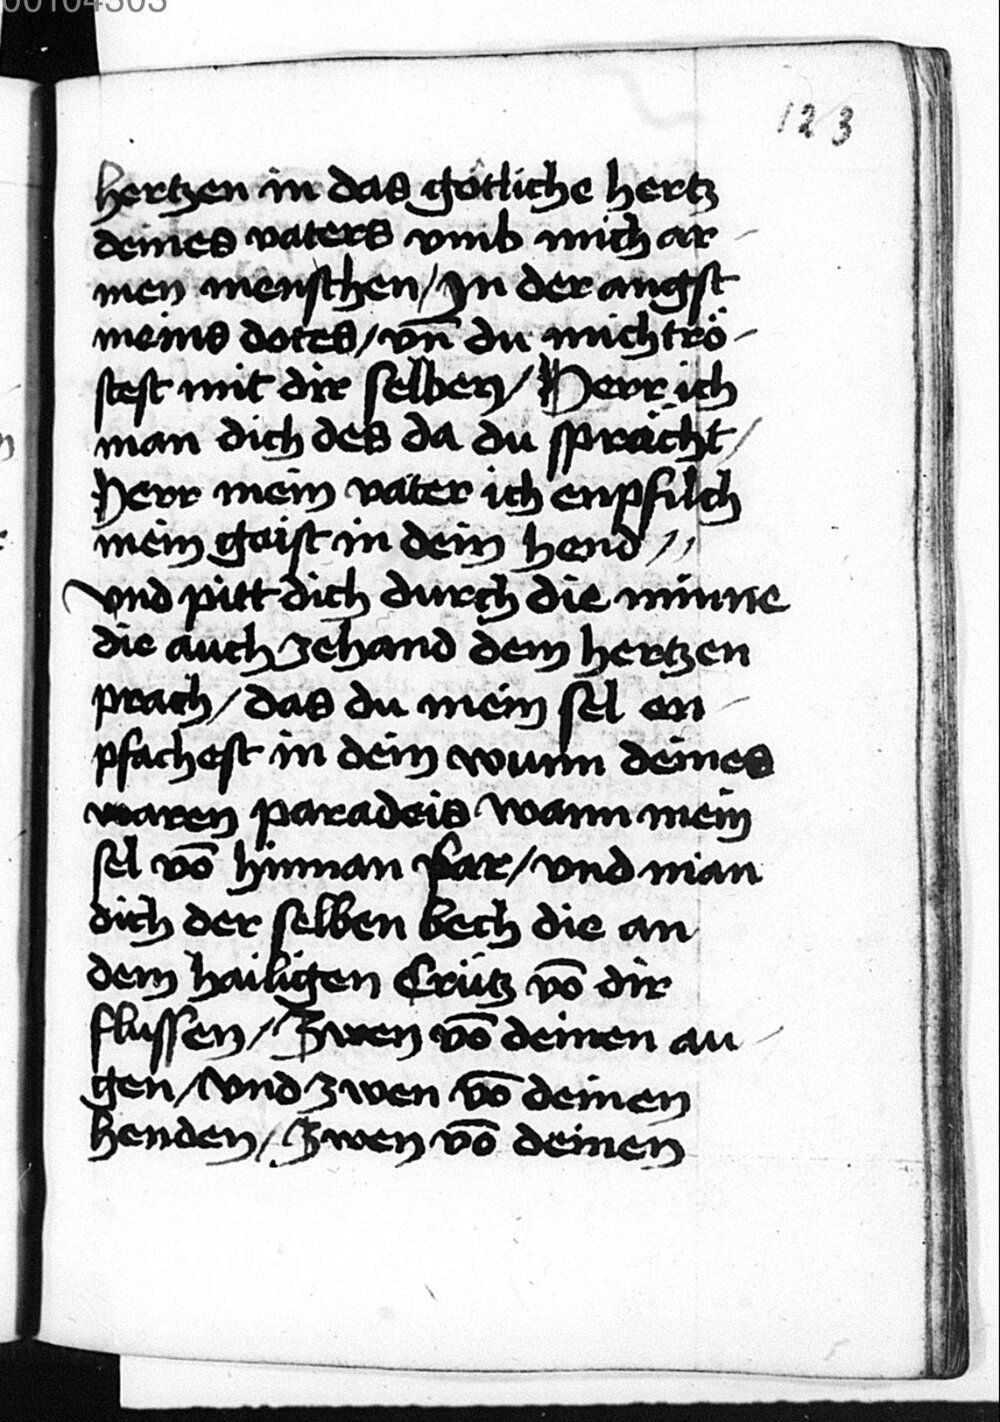 00104303
123
hertzen in das götliche hertz
deines vaters vmb mich ar-
men menschen / Jn der angst
meins dotes / vn̄ du mich trö-
stest mit dir selben / Herr ich
man dich des da du sprächt /
Herr mein vater ich enpfilch
mein gaist in dein hend //
vnd pitt dich durch die minne
die auch zehand dem hertzen
prach / das du mein sel en-
pfachest in dein wunn deines
waren paradeis wann mein
sel vō hinnan var / vnd man
dich der selben bech die an
dem hailigen Crütz vō dir
flussen / Zwen vō deinen au-
gen / vnd zwen vō deinen
henden / Zwen vō deinen